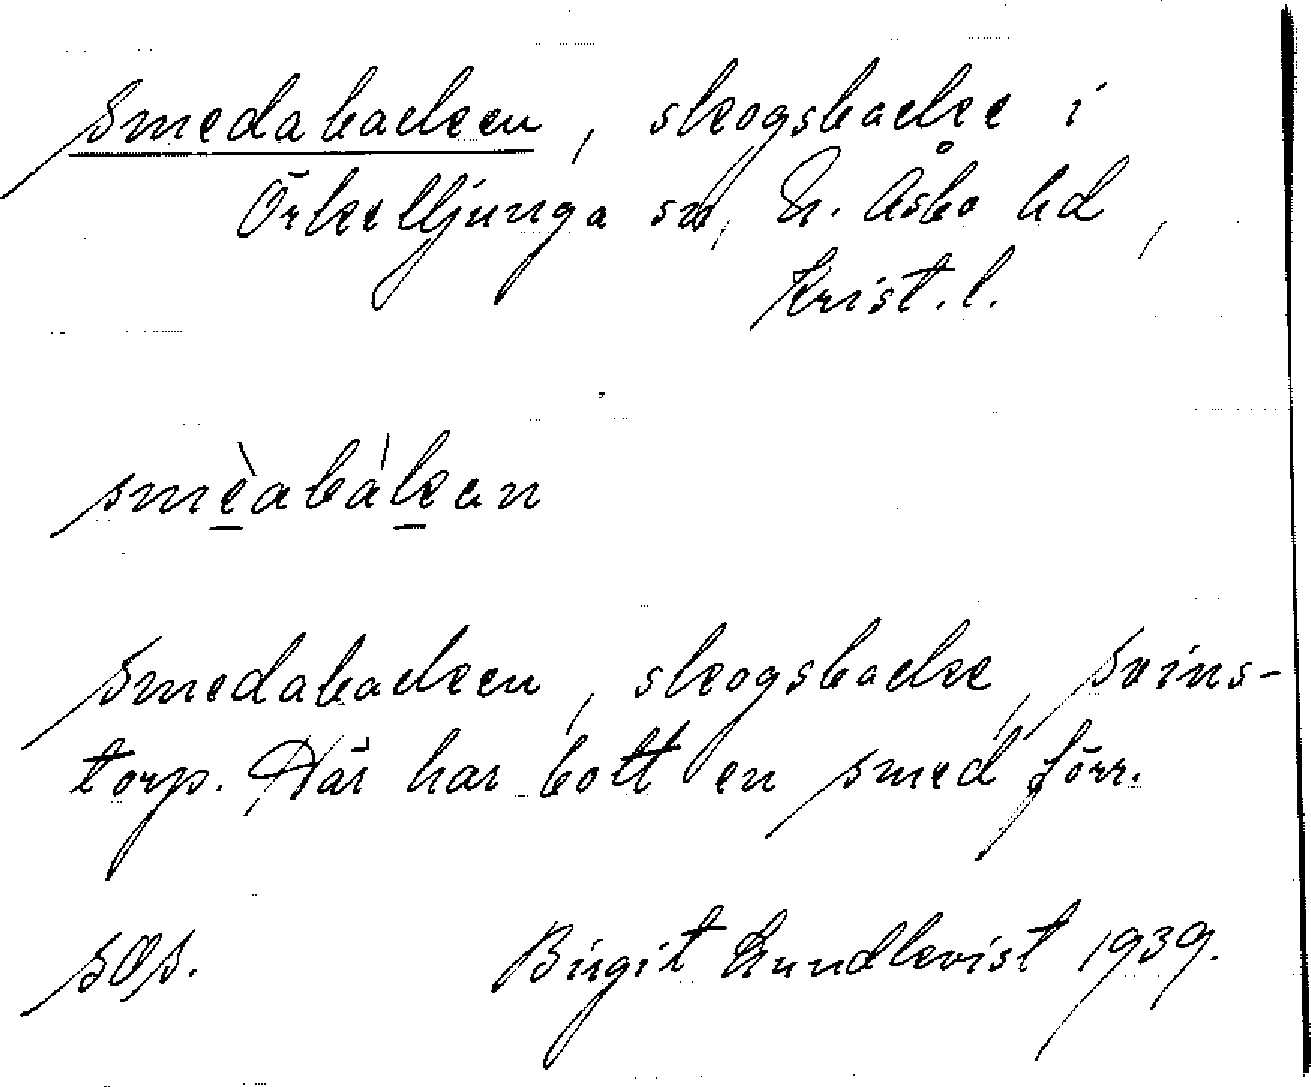 Smedabacken, skogsbacke i
Örkelljunga sn, N. Åsbo hd,
Krist. l.
smèabàkan
Smedabacken, skogsbacke, Svins-
torp. Här har bott en smed förr.
Birgit Lundkvist 1939.